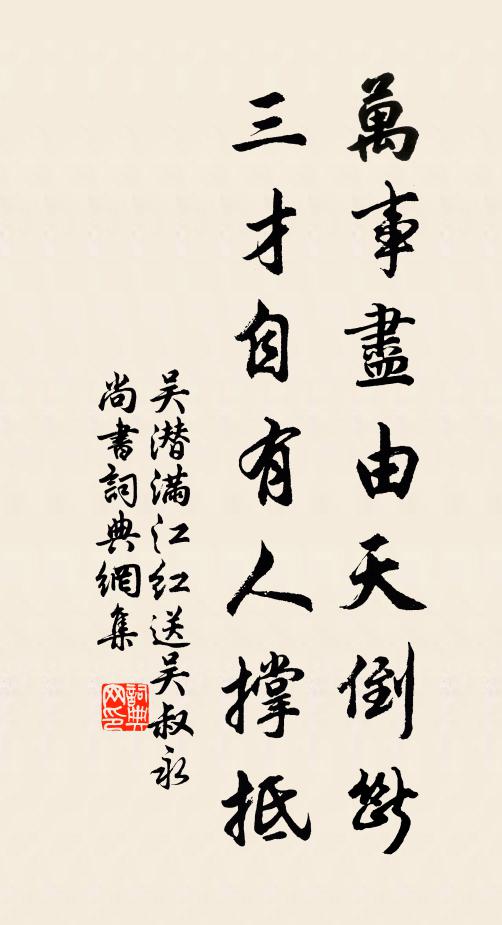 萬事盡由天倒斷
三才自有人撐抵
吴潜满江红送吴叔永
尚書詞典網集
詞典网印